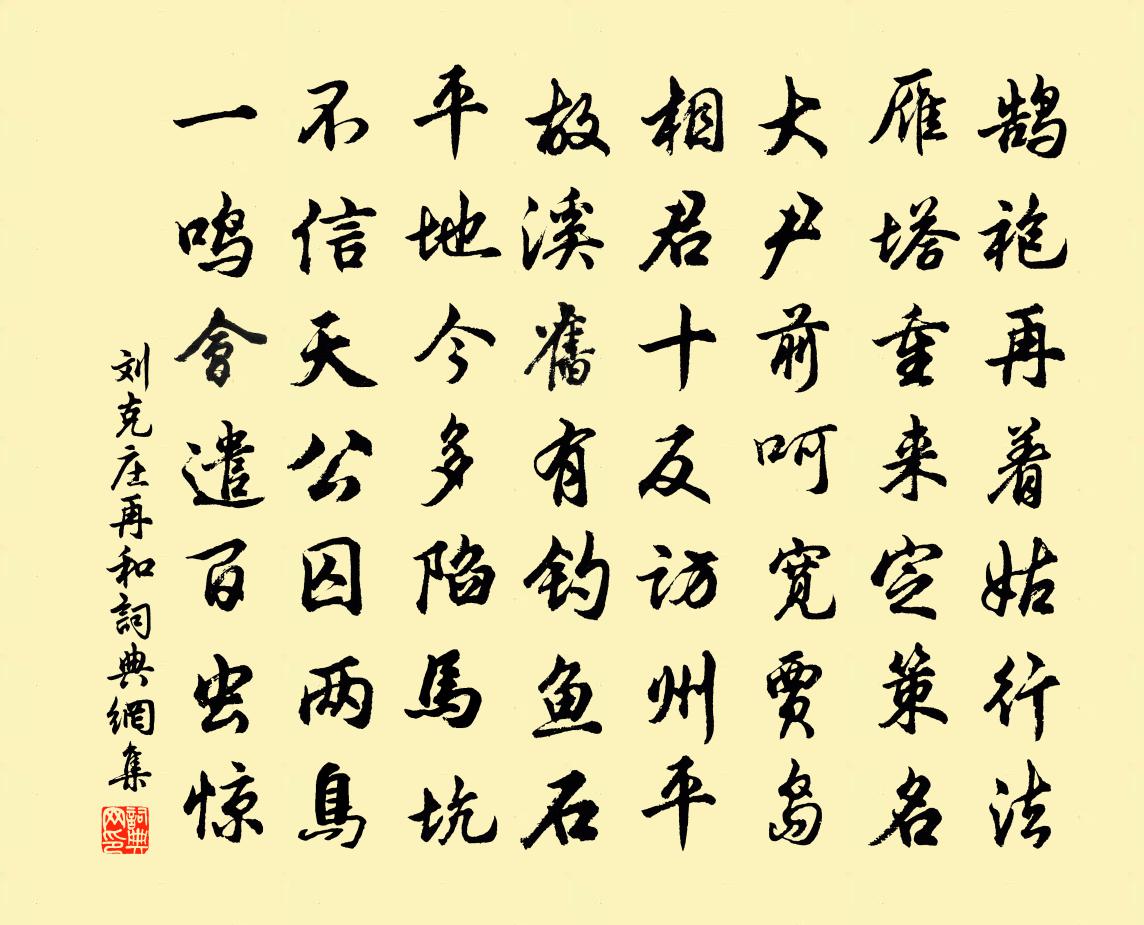 鹄袍再着姑行法
雁塔重来定策名
大尹前呵宽贾岛
相君十反访州平
故溪旧有钓鱼石
平地今多陷马坑
不信天公囚两鸟
一鸣会遣百虫惊
刘克庄再和詞典網集
詞典
网印